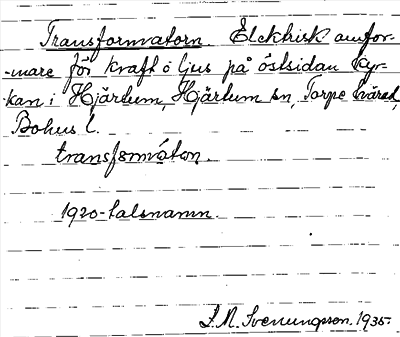 Transformatorn. Elektrisk omfor-
-mare för kraft o ljus på östsidan kyr-
-kan i Hjärtum, Hjärtum sn, Torpe härad,
Bohus l.
transfərmátən.
1920-talsnamn.
L.M. Svenungsson. 1935.